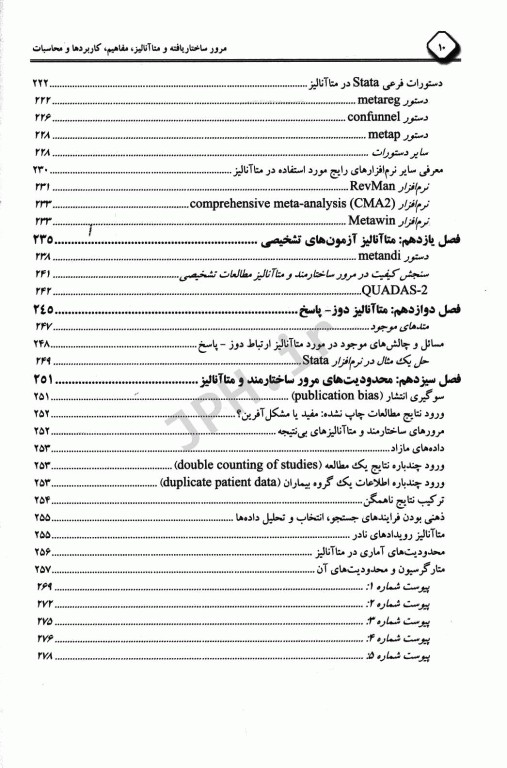 ۱۰ مرور ساختاریافته و متاآنالیز، مفاهیم، کاربردها و محاسبات
دستورات فرعی Stata در متاآنالیز ۲۲۲
دستور metareg ۲۲۲
دستور confunnel ۲۲۶
دستور metap ۲۲۸
سایر دستورات ۲۲۸
معرفی سایر نرم‌افزارهای رایج مورد استفاده در متاآنالیز ۲۳۰
نرم‌افزار RevMan ۲۳۱
نرم‌افزار comprehensive meta-analysis (CMA2) ۲۳۳
نرم‌افزار Metawin ۲۳۳
فصل یازدهم: متاآنالیز آزمون‌های تشخیصی ۲۳۵
دستور metandi ۲۳۸
سنجش کیفیت در مرور ساختارمند و متاآنالیز مطالعات تشخیصی ۲۴۱
QUADAS-2 ۲۴۲
فصل دوازدهم: متاآنالیز دوز - پاسخ ۲۴۵
متدهای موجود ۲۴۷
مسائل و چالش‌های موجود در مورد متاآنالیز ارتباط دوز - پاسخ ۲۴۸
حل یک مثال در نرم‌افزار Stata ۲۴۹
فصل سیزدهم: محدودیت‌های مرور ساختارمند و متاآنالیز ۲۵۱
سوگیری انتشار (publication bias) ۲۵۱
ورود نتایج مطالعات چاپ نشده: مفید یا مشکل‌آفرین؟ ۲۵۲
مرورهای ساختارمند و متاآنالیزهای بی‌نتیجه ۲۵۲
داده‌های مازاد ۲۵۳
ورود چندباره نتایج یک مطالعه (double counting of studies) ۲۵۳
ورود چندباره اطلاعات یک گروه بیماران (duplicate patient data) ۲۵۳
ترکیب نتایج ناهمگن ۲۵۴
ذهنی بودن فرایندهای جستجو، انتخاب و تحلیل داده‌ها ۲۵۵
متاآنالیز رویدادهای نادر ۲۵۵
محدودیت‌های آماری در متاآنالیز ۲۵۶
متارگرسیون و محدودیت‌های آن ۲۵۷
پیوست شماره ۱: ۲۶۹
پیوست شماره ۲: ۲۷۲
پیوست شماره ۳: ۲۷۵
پیوست شماره ۴: ۲۷۶
پیوست شماره ۵: ۲۷۸
JPH.ir